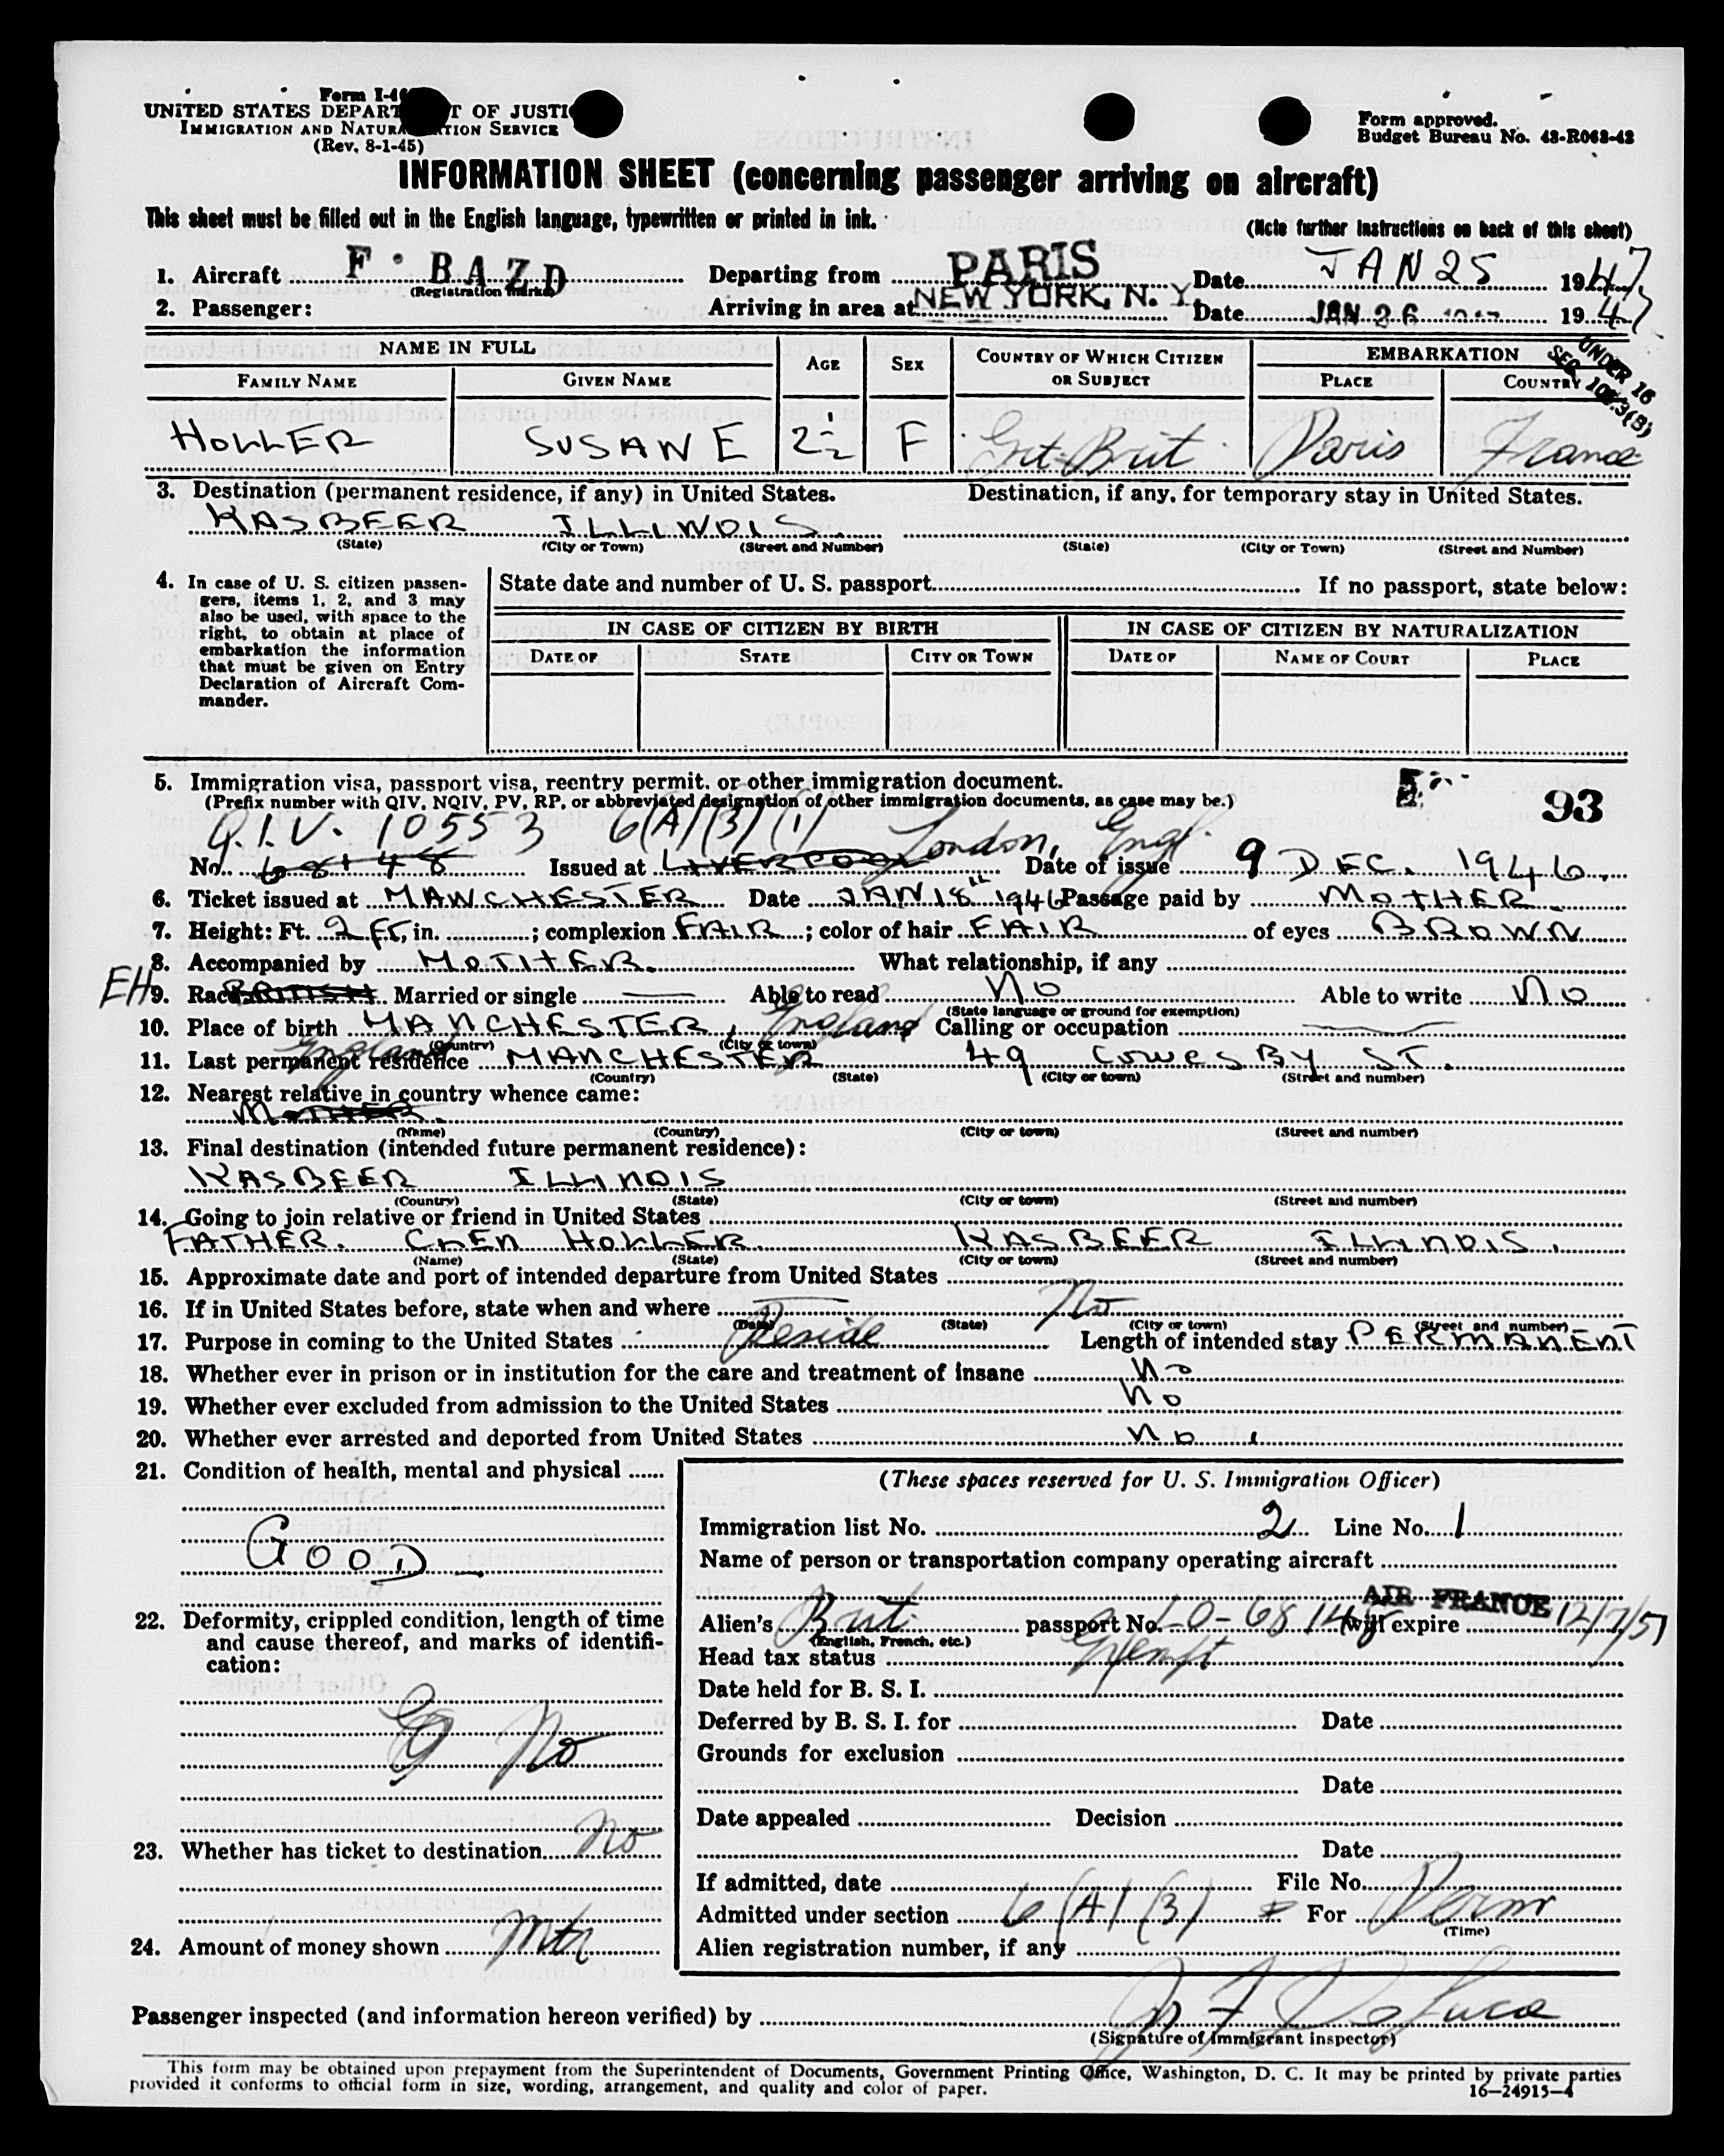 Form I-46
UNITED STATES DEPART T OF JUSTI
IMMIGRATION AND NATURA TION SERVICE
(Rev. 8-1-45)
Form approved.
Budget Bureau No. 43-R063-42
INFORMATION SHEET (concerning passenger arriving on aircraft)
This sheet must be filled out in the English language, typewritten or printed in ink. (Note further instructions on back of this sheet)
1. Aircraft F · BAZD Departing from PARIS Date JAN 25 1947
(Registration marks)
2. Passenger: Arriving in area at NEW YORK, N. Y. Date JAN 26 1947 1947
NAME IN FULL AGE SEX COUNTRY OF WHICH CITIZEN OR SUBJECT EMBARKATION
FAMILY NAME GIVEN NAME PLACE COUNTRY
UNDER 16
SEC 108.3(B)
HOLLER SUSAN E 2½ F Grt. Brit. Paris France
3. Destination (permanent residence, if any) in United States. Destination, if any, for temporary stay in United States.
KASBEER ILLINOIS
(State) (City or Town) (Street and Number) (State) (City or Town) (Street and Number)
4. In case of U. S. citizen passen-
gers, items 1, 2, and 3 may
also be used, with space to the
right, to obtain at place of
embarkation the information
that must be given on Entry
Declaration of Aircraft Com-
mander.
State date and number of U. S. passport If no passport, state below:
IN CASE OF CITIZEN BY BIRTH IN CASE OF CITIZEN BY NATURALIZATION
DATE OF STATE CITY OR TOWN DATE OF NAME OF COURT PLACE
5. Immigration visa, passport visa, reentry permit, or other immigration document.
(Prefix number with QIV, NQIV, PV, RP, or abbreviated designation of other immigration documents, as case may be.)
93
Q.I.V. 10553 6(A)(3)(1) London, Engl.
No. 68148 Issued at LIVERPOOL Date of issue 9 DEC. 1946.
6. Ticket issued at MANCHESTER Date JAN 18th 1946 Passage paid by MOTHER.
7. Height: Ft. 2 FT, in. ; complexion FAIR ; color of hair FAIR of eyes BROWN
8. Accompanied by MOTHER. What relationship, if any
EH 9. Race BRITISH Married or single Able to read No Able to write NO
(State language or ground for exemption)
10. Place of birth MANCHESTER, England Calling or occupation
(Country) (City or town)
11. Last permanent residence England MANCHESTER 49 COWESBY ST.
(Country) (State) (City or town) (Street and number)
12. Nearest relative in country whence came:
MOTHER.
(Name) (Country) (City or town) (Street and number)
13. Final destination (intended future permanent residence):
KASBEER ILLINOIS
(Country) (State) (City or town) (Street and number)
14. Going to join relative or friend in United States
FATHER. GLEN HOLLER KASBEER ILLINOIS.
(Name) (State) (City or town) (Street and number)
15. Approximate date and port of intended departure from United States
16. If in United States before, state when and where No
(Date) (State) (City or town) (Street and number)
17. Purpose in coming to the United States Reside Length of intended stay PERMANENT
18. Whether ever in prison or in institution for the care and treatment of insane No
19. Whether ever excluded from admission to the United States No
20. Whether ever arrested and deported from United States No.
21. Condition of health, mental and physical
GOOD
22. Deformity, crippled condition, length of time
and cause thereof, and marks of identifi-
cation:
No
23. Whether has ticket to destination No
24. Amount of money shown Mth
(These spaces reserved for U. S. Immigration Officer)
Immigration list No. 2 Line No. 1
Name of person or transportation company operating aircraft
AIR FRANCE
Alien's Brit. passport No. LO-68148 will expire 12/7/51
(English, French, etc.)
Head tax status Exempt
Date held for B. S. I.
Deferred by B. S. I. for Date
Grounds for exclusion
Date
Date appealed Decision
Date
If admitted, date File No.
Admitted under section 6(A)(3) For Perm
(Time)
Alien registration number, if any
Passenger inspected (and information hereon verified) by
(Signature of immigrant inspector)
This form may be obtained upon prepayment from the Superintendent of Documents, Government Printing Office, Washington, D. C. It may be printed by private parties
provided it conforms to official form in size, wording, arrangement, and quality and color of paper. 16—24915-4